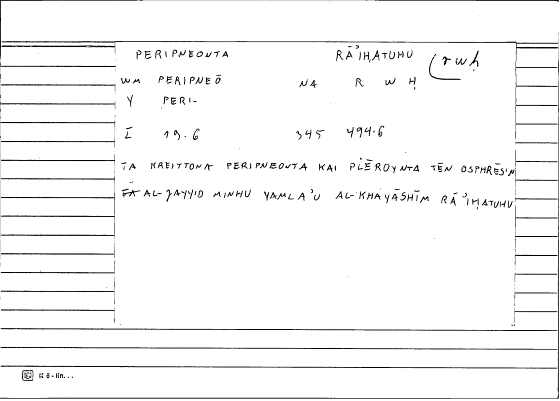 PERIPNEONTA RĀʾIḤATUHU rwḥ
WM PERIPNEŌ NA R W Ḥ
Y PERI-
I 19.6 345 494.6
TA KREITTONA PERIPNEONTA KAI PLĒROYNTA TĒN OSPHRĒSIN
AL-JAYYID MINHU YAMLAʾU AL-KHAYĀSHĪM RĀʾIḤATUHU